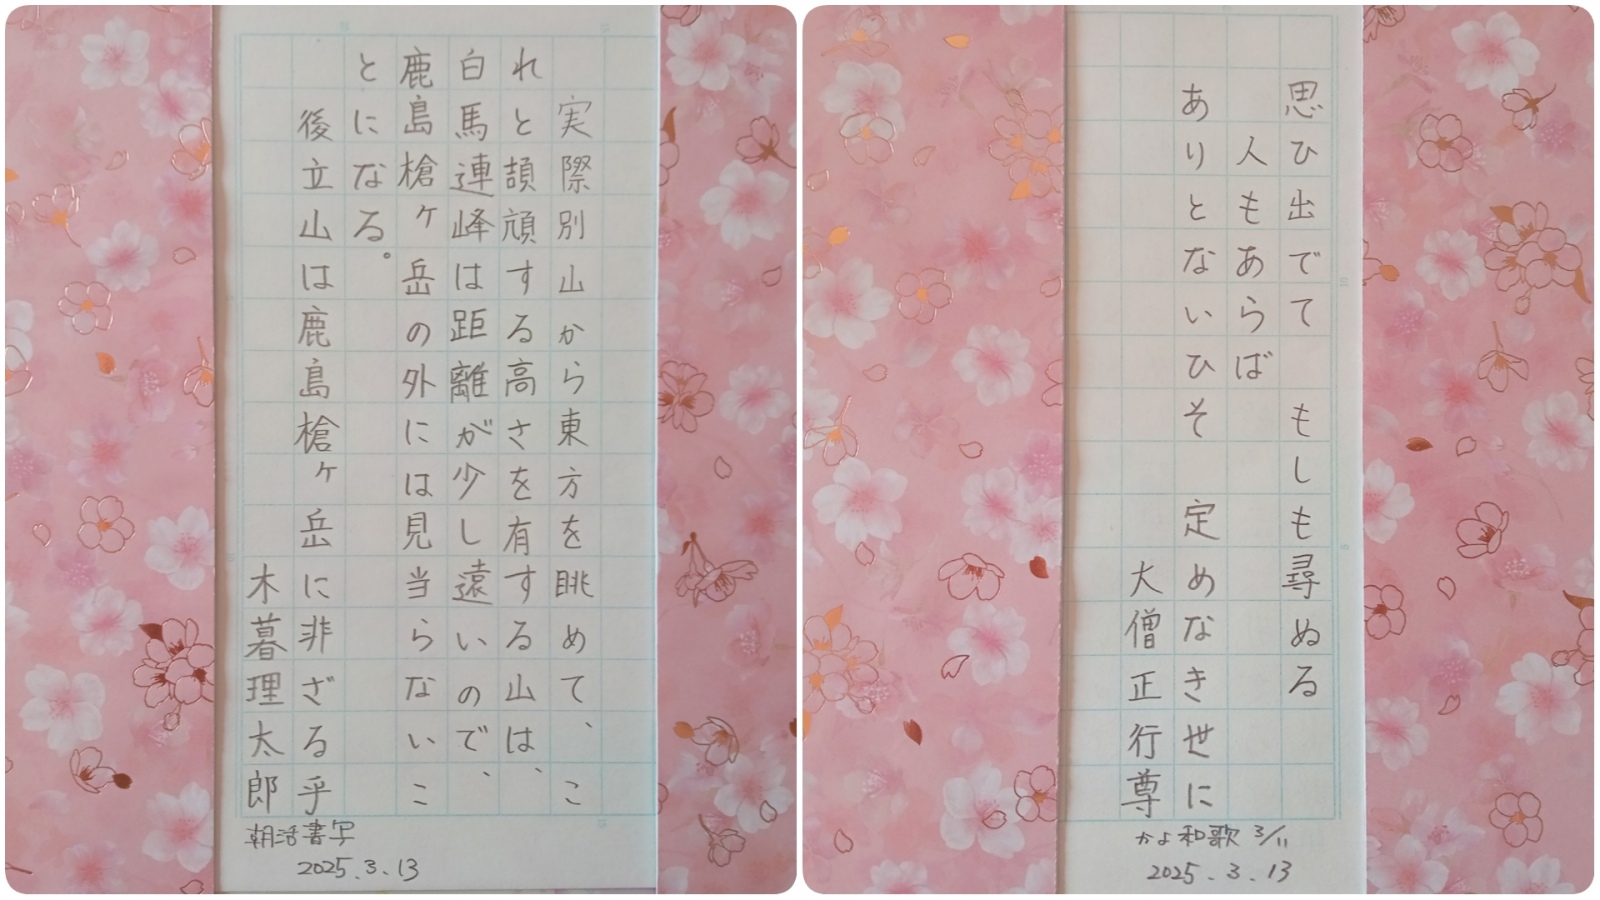 実際別山から東方を眺めて、こ
れと頡頏する高さを有する山は、
白馬連峰は距離が少し遠いので、
鹿島槍ヶ岳の外には見当らないこ
とになる。
後立山は鹿島槍ヶ岳に非ざる乎
木暮理太郎
朝活書写
2025.3.13
思ひ出でて もしも尋ぬる
人もあらば
ありとないひそ 定めなき世に
大僧正行尊
かよ和歌 3/11
2025.3.13